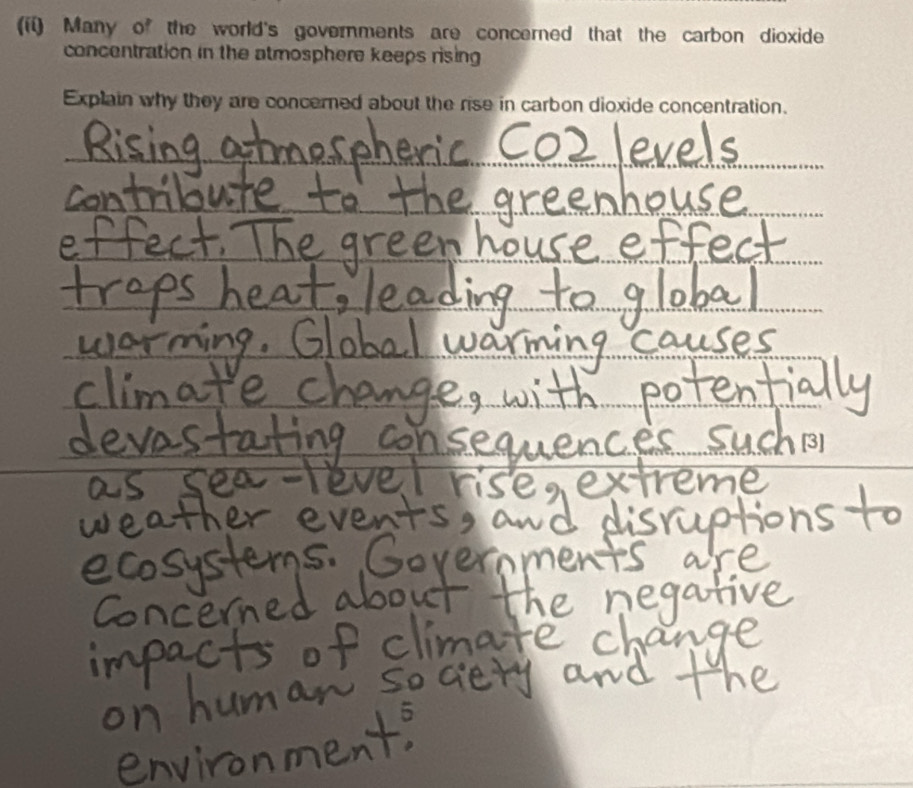 (ii) Many of the world's governments are concerned that the carbon dioxide
concentration in the atmosphere keeps rising
Explain why they are concerned about the rise in carbon dioxide concentration.
Rising atmospheric CO2 levels
contribute to the greenhouse
effect. The greenhouse effect
traps heat, leading to global
warming. Global warming causes
climate change, with potentially
devastating consequences such [3]
as sea-level rise, extreme
weather events, and disruptions to
ecosystems. Governments are
concerned about the negative
impacts of climate change
on human society and the
5
environment.